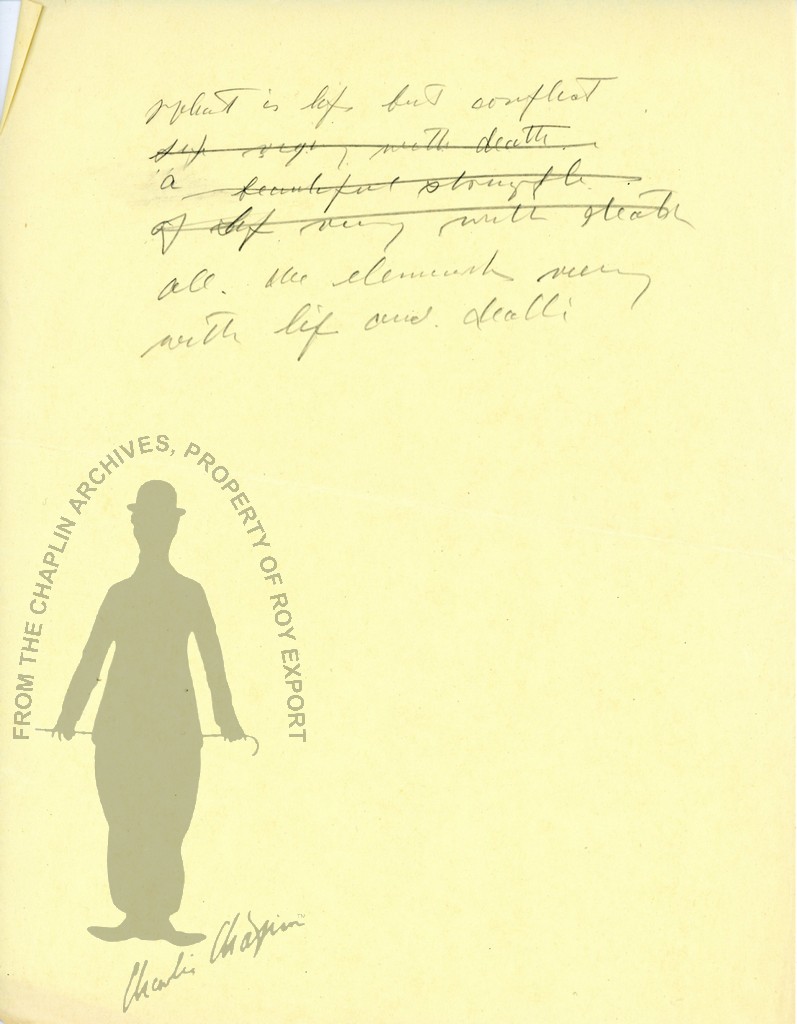 what is life but conflict
with death.
a beautiful struggle.
of life vieing with death
all. the elements vieing
with life and death:
FROM THE CHAPLIN ARCHIVES, PROPERTY OF ROY EXPORT
Charlie Chaplin